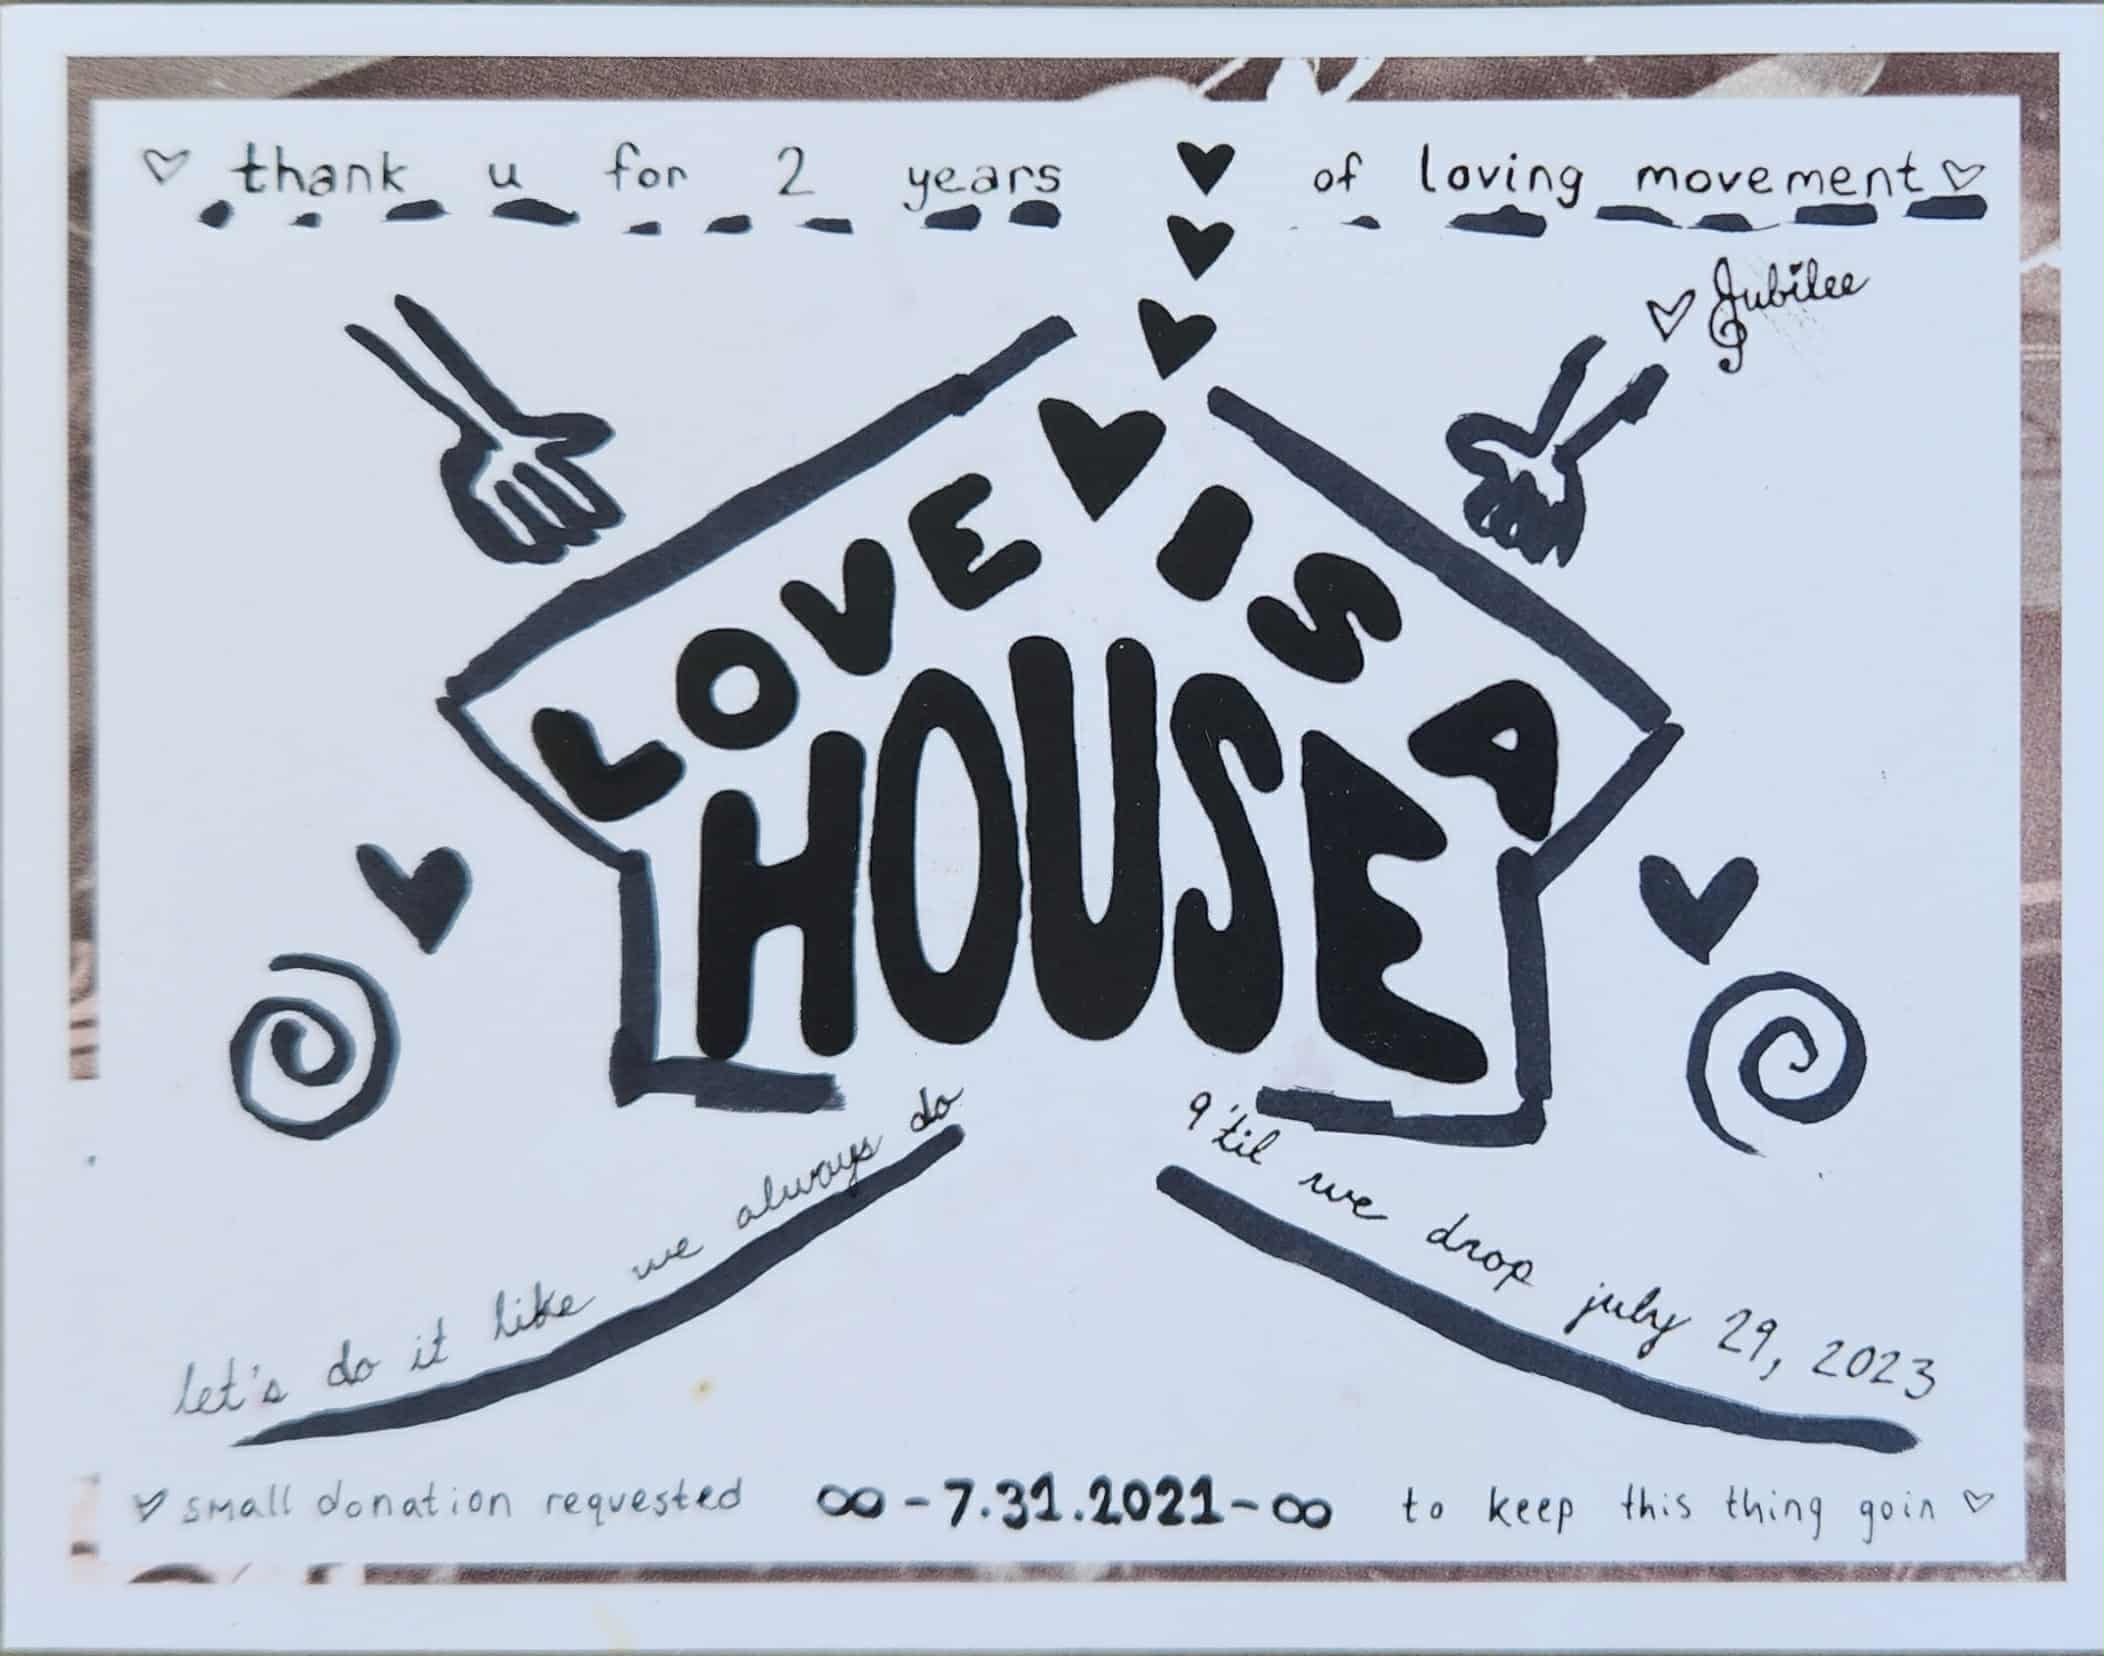 thank u for 2 years of loving movement
Jubilee
LOVE IS A
HOUSE
let's do it like we always do
9 'til we drop july 29, 2023
small donation requested ∞-7.31.2021-∞ to keep this thing goin